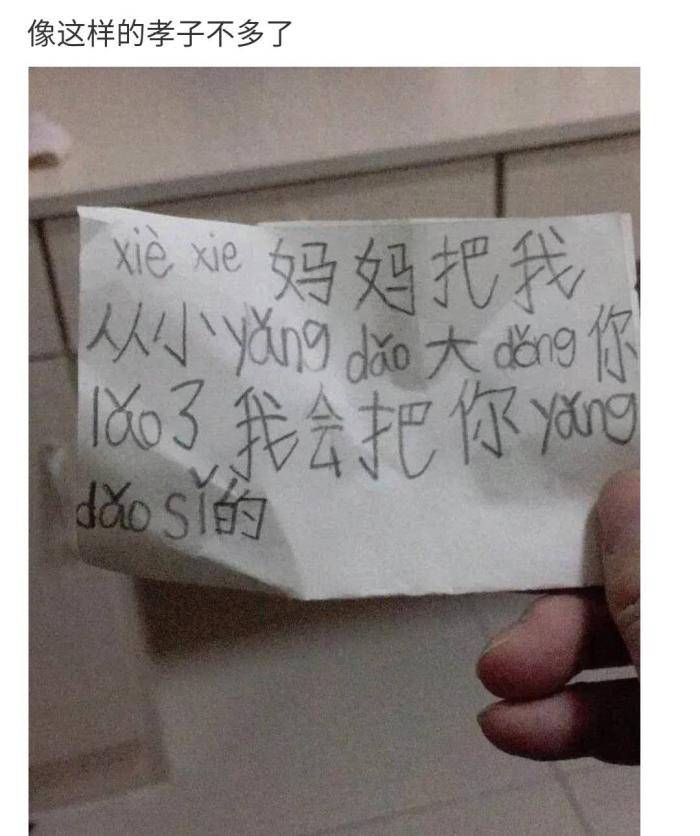 像这样的孝子不多了
xiè xie 妈妈把我
从小yǎng dǎo 大 děng 你
lǎo了我会把你 yǎng
dǎo sǐ的